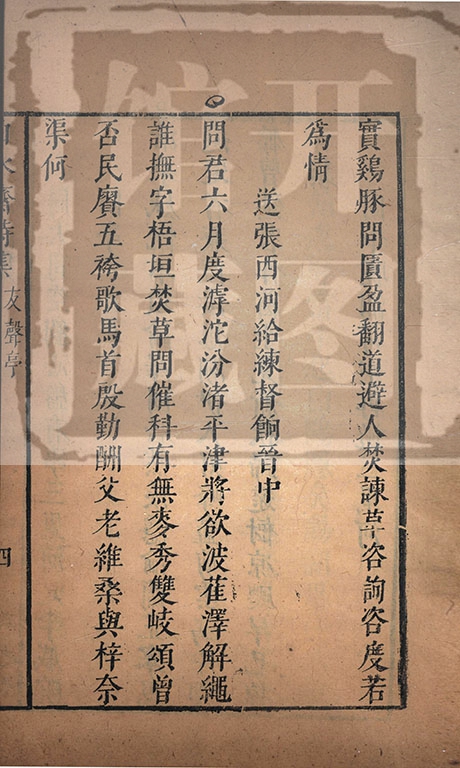 實鷄豚問匱盈翻道避人焚諫草咨詢咨度若
爲情
送張西河給練督餉晉中
問君六月度滹沱汾渚平津將欲波萑澤解繩
誰撫字梧垣焚草問催科有無麥秀雙岐頌曾
否民賡五袴歌馬首殷勤酬父老維桑與梓奈
渠何
友聲亭
四
开图
馆藏